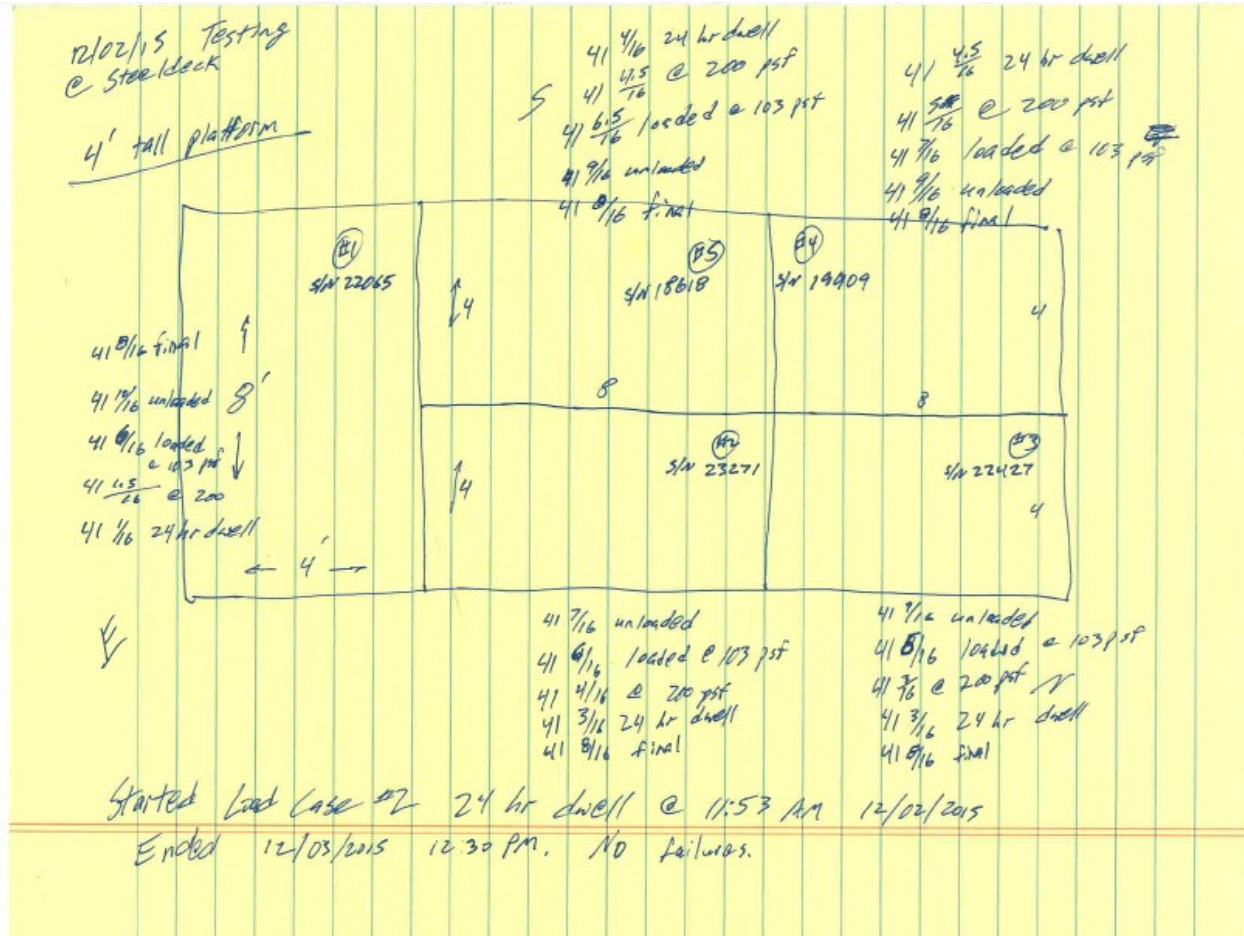 12/02/15 Testing
@ Steeldeck
4' tall platform
41 4/16 24 hr dwell
41 4.5/16 @ 200 psf
S
41 6.5/16 loaded @ 103 psf
41 9/16 unloaded
41 8/16 final
41 4.5/16 24 hr dwell
41 /16 @ 200 psf
41 7/16 loaded @ 103 psf
41 9/16 unloaded
41 8/16 final
#1
S/N 22065
#5
S/N 18618
#4
S/N 19909
4
4
41 8/16 final
41 10/16 unloaded
8'
41 6/16 loaded
@ 103 psf
41 4.5/16 @ 200
41 1/16 24 hr dwell
4'
8
8
#2
S/N 23271
#3
S/N 22427
4
4
E
41 7/16 unloaded
41 6/16 loaded @ 103 psf
41 4/16 @ 200 psf
41 3/16 24 hr dwell
41 8/16 final
41 9/16 unloaded
41 8/16 loaded @ 103 psf
41 /16 @ 200 psf
N
41 3/16 24 hr dwell
41 8/16 final
Started Load Case #2 24 hr dwell @ 11:53 AM 12/02/2015
Ended 12/03/2015 12:30 PM. No failures.